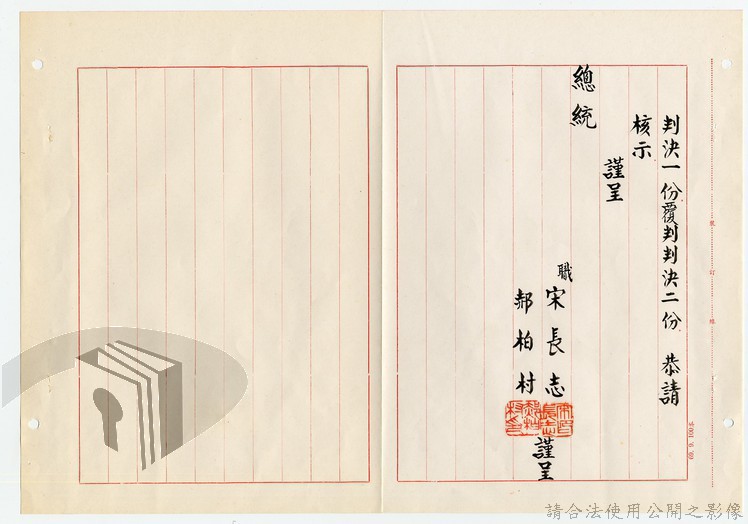 判決一份覆判判決二份　恭請
核示
謹呈
總統
職 宋長志
郝柏村
謹呈
裝訂線
69. 9. 100本
請合法使用公開之影像